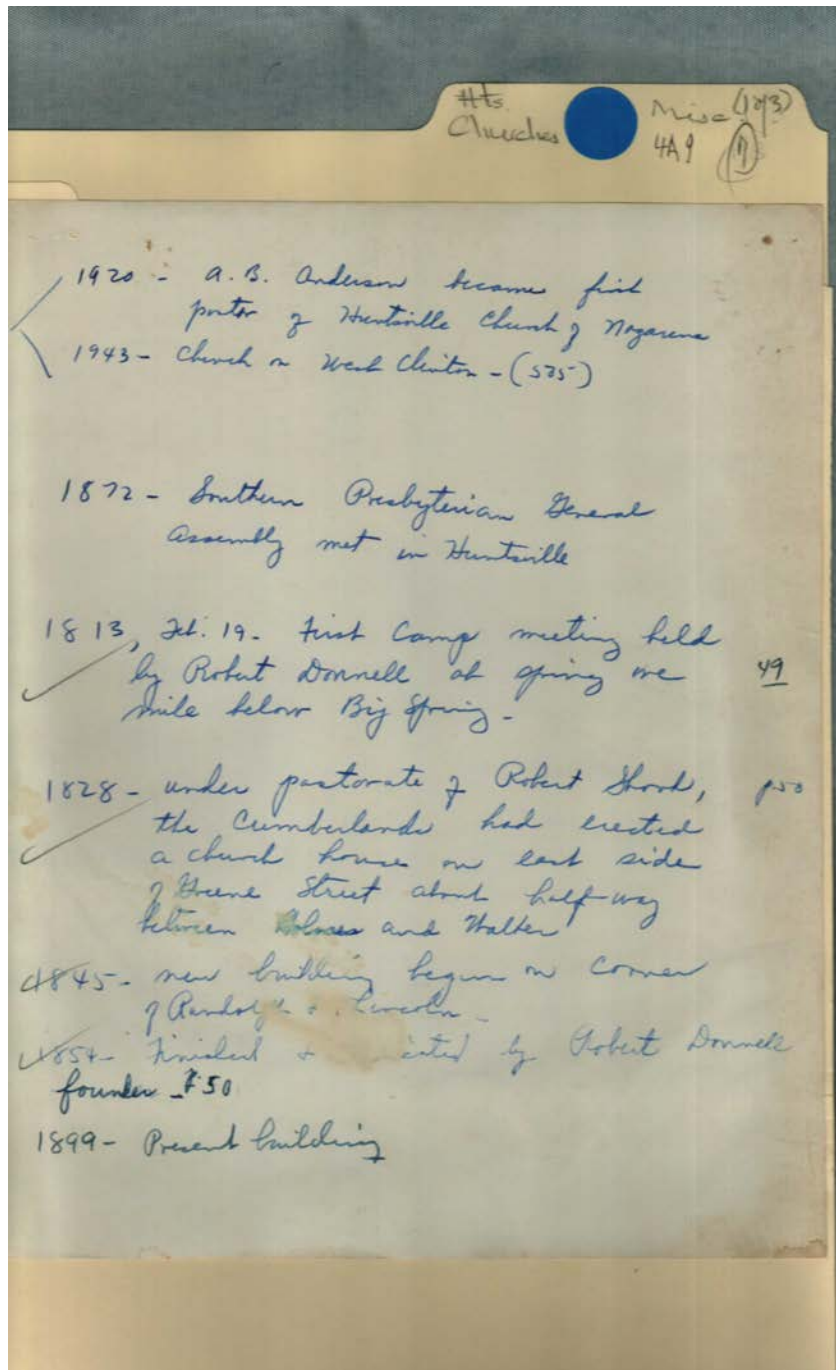 Hts.
Churches
Misc (1873)
4A9
7
1920 - A. B. Anderson became first
pastor of Huntsville Church of Nazarene
1943 - Church on West Clinton - (525)
1872 - Southern Presbyterian General
Assembly met in Huntsville
1813, Feb. 19 - First Camp meeting held
by Robert Donnell at spring one 49
mile below Big Spring -
1828 - under pastorate of Robert Shook, p 50
the Cumberlands had erected
a church house on east side
of Greene Street about half-way
between Holmes and Walker
1845 - new building begun on corner
of Randolph & Lincoln -
1854 - Finished & by Robert Donnell
founder - P 50
1899 - Present building